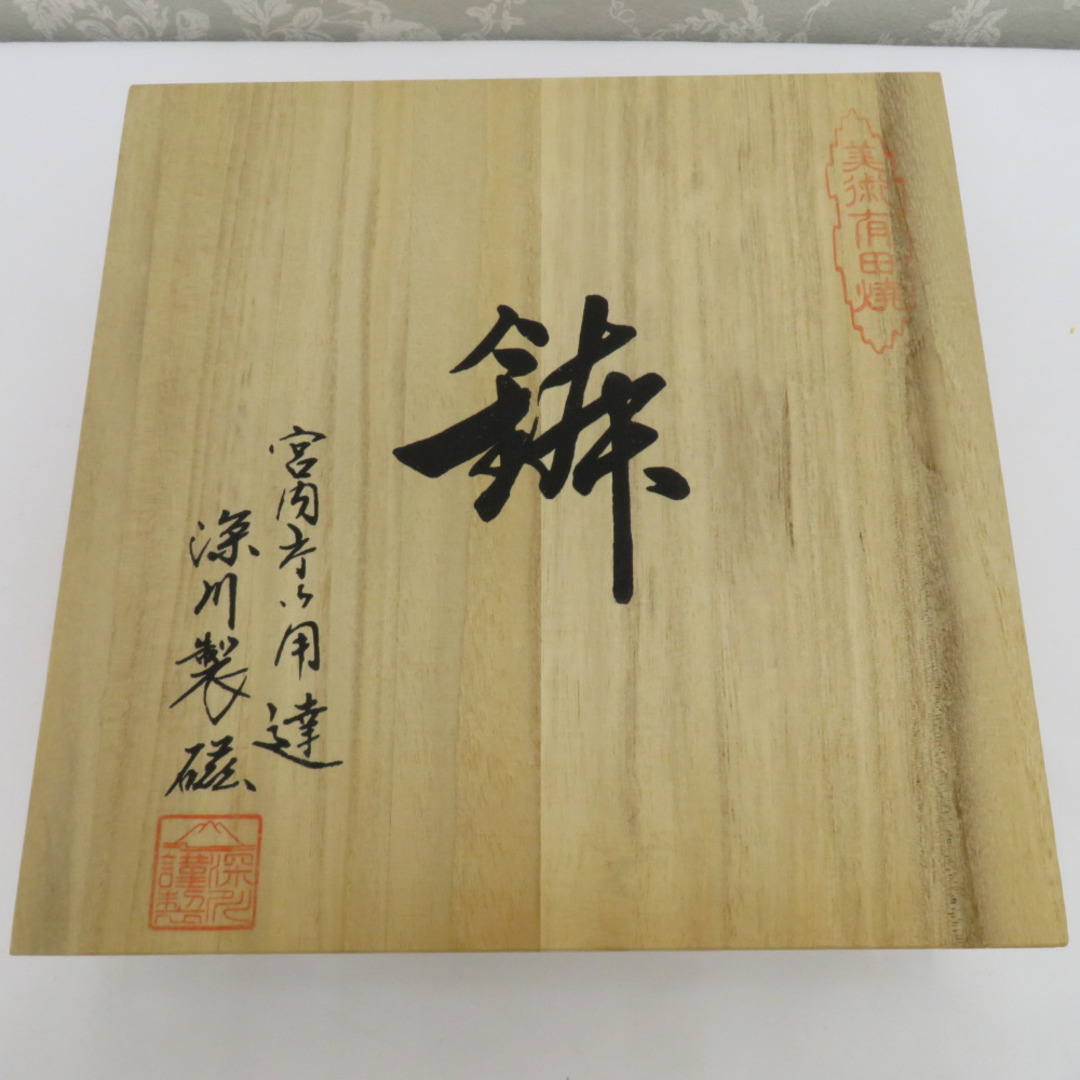 美術有田焼
鉢
宮内庁御用達
深川製磁
深川
謹製